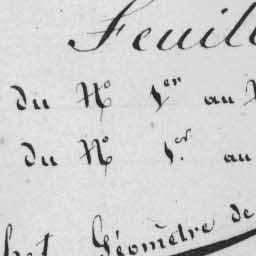 Feuil
du N° 1er au
du N° 1er au
Géomètre de